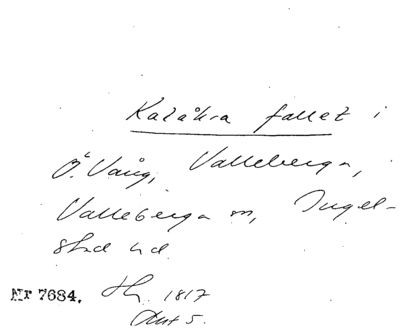 Kalåkra fallet i
Ö. Vång, Valleberga,
Valleberga m, Ingel-
stad hd
Nr 7684. 1817
Akt 5.